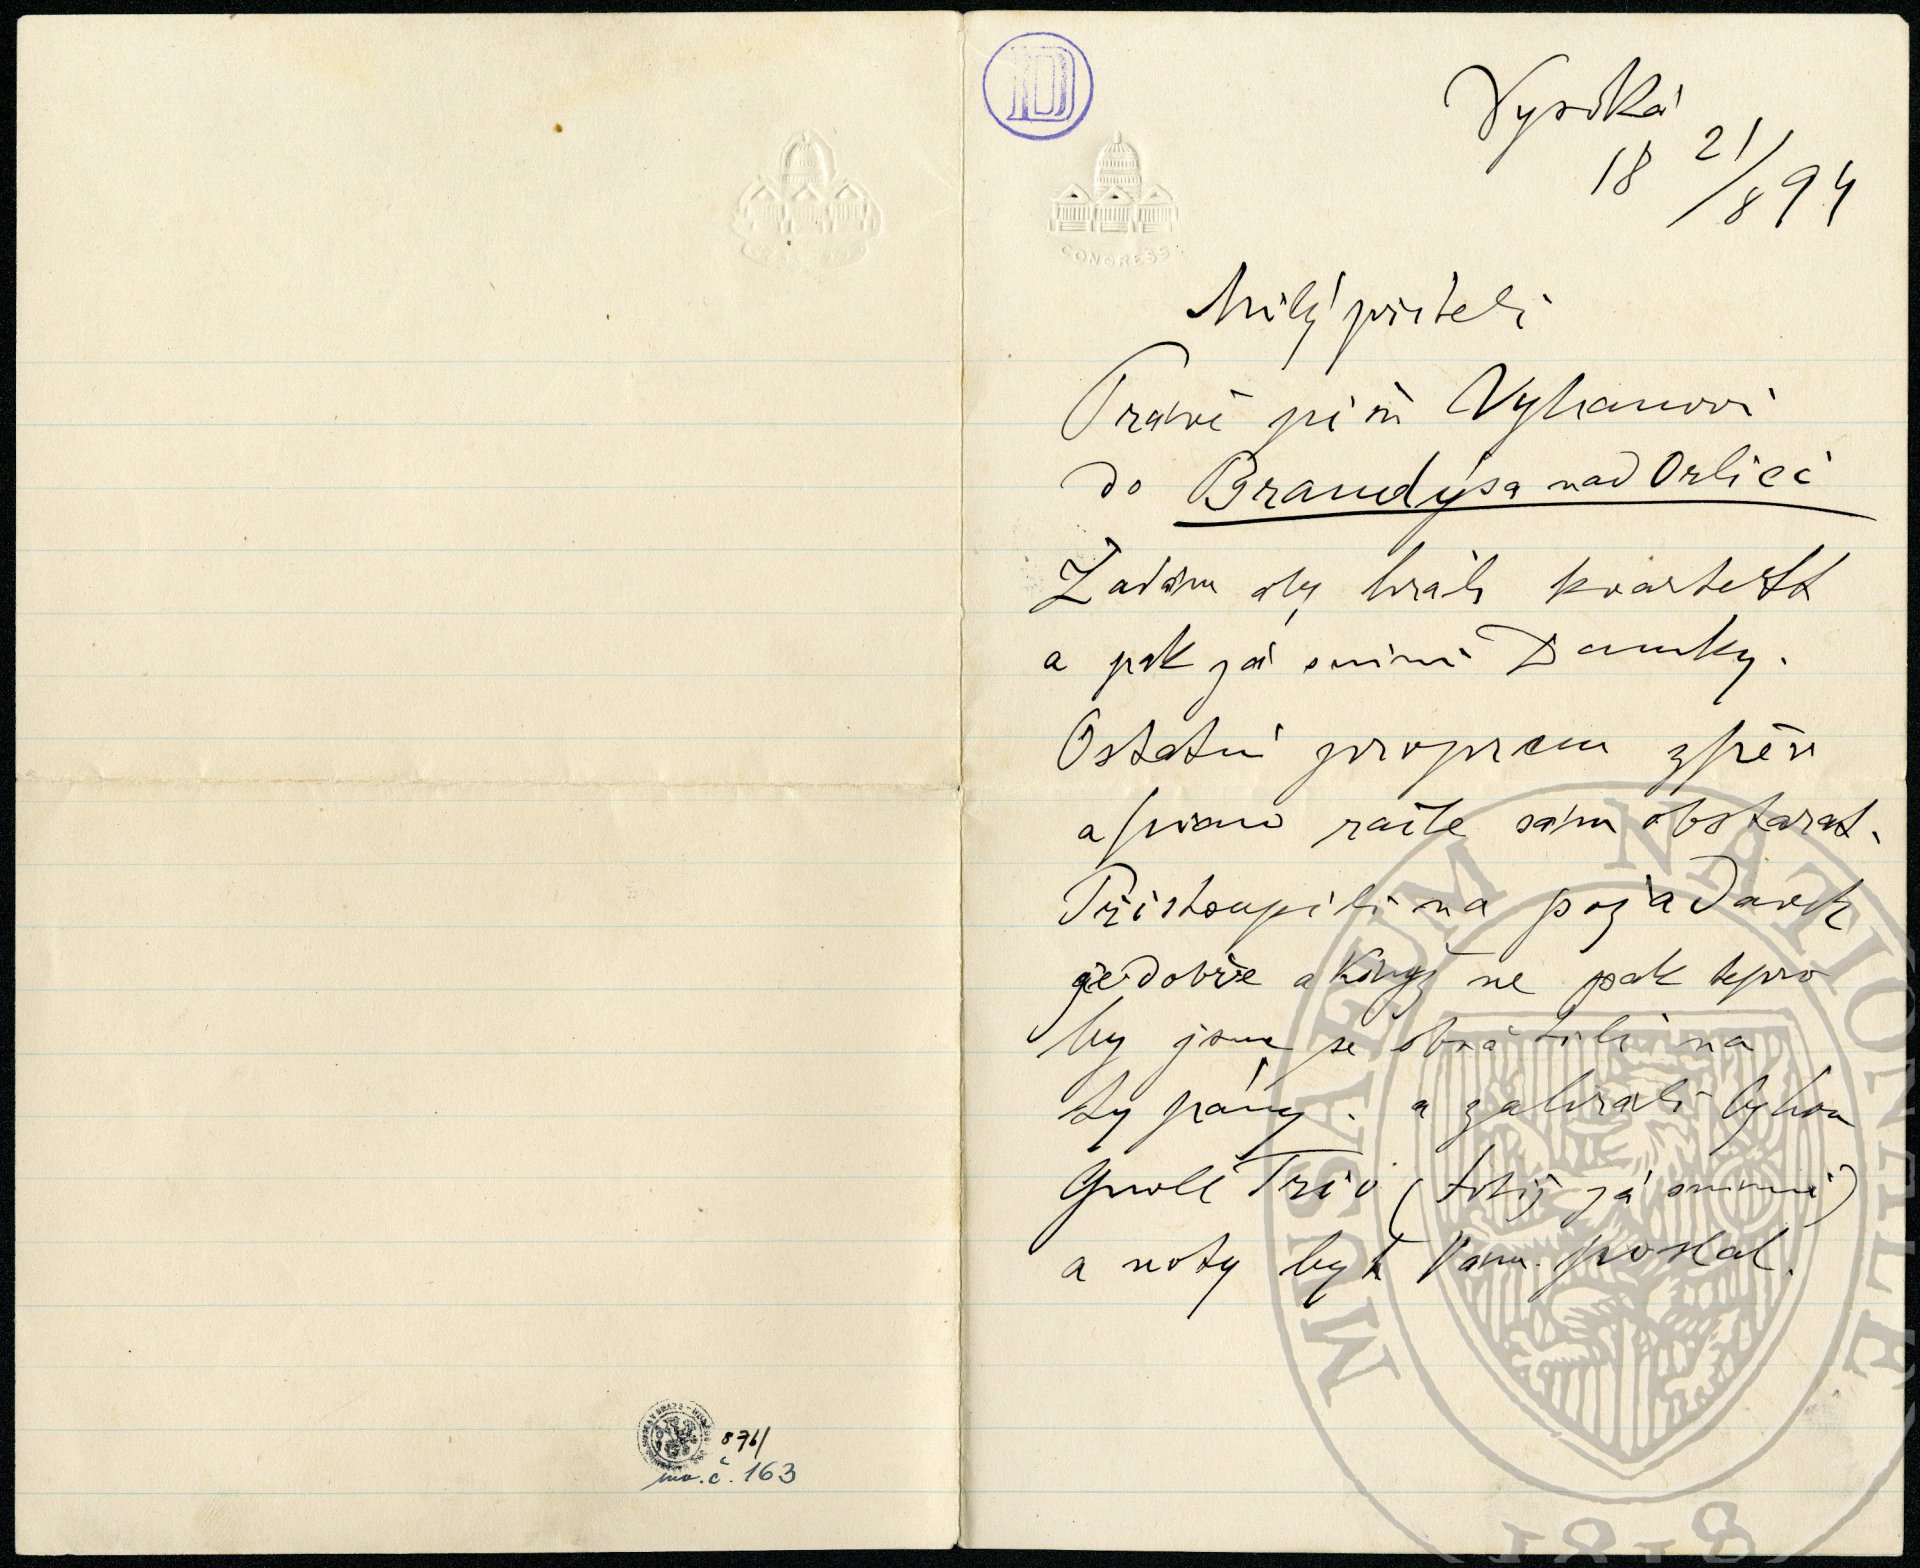 876/
inv. č. 163
D
CONGRESS
Vysoká
18 21/8 94
Milý příteli
Právě píši Vyhanovi
do Brandýsa nad Orlicí
Žádám aby hráli kvartett
a pak já s nimi Dumky.
Ostatní program zpěv
a piano račte sám obstarat.
Přistoupili na požadavek
je dobře a když ne pak tepro
by jsme se obrátili na
ty pány. a zahráli bychom
Gmoll Trio (totiž já s nimi)
a noty bych Vám poslal.
MUSAEUM NATIONALE
1818